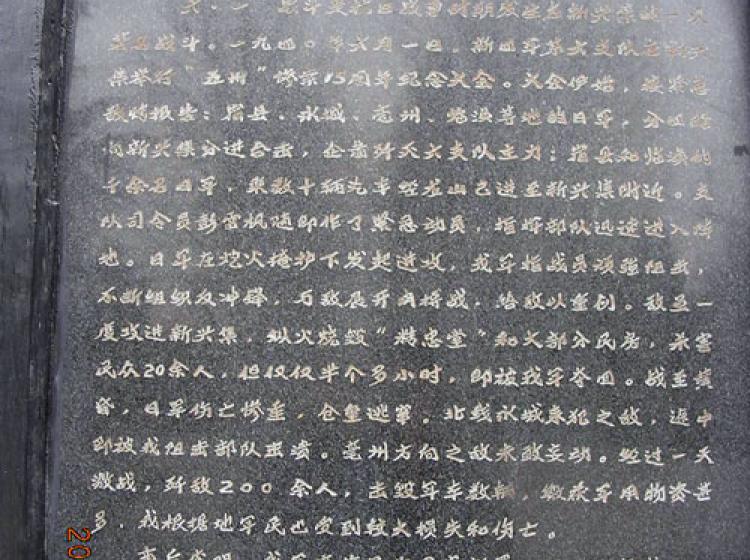 六·一 战斗是抗日战争时期发生在新兴集的一次
著名战斗。一九四〇年六月一日，新四军第六支队在新兴
集举行"五卅"惨案15周年纪念大会。大会伊始，
敌情报告：宿县、永城、亳州、涡阳等地的日军，分
向新兴集分进合击，企图歼灭六支队主力；宿县和
千余名日军，乘数十辆汽车经龙山已进至新兴集附近。支
队司令员彭雪枫随即作了紧急动员，指挥部队迅速进入阵
地。日军在炮火掩护下发起进攻，我军指战员顽强阻击，
不断组织反冲锋，与敌展开肉搏战，给敌以重创。敌虽一
度攻进新兴集，纵火烧毁"精忠堂"和大部分民房，杀害
民众20余人，但仅仅半个多小时，即被我军夺回。战至黄
昏，日军伤亡惨重，仓皇逃窜。北线永城来犯之敌，途中
即被我阻击部队击溃。亳州方向之敌未敢妄动。经过一天
激战，歼敌200余人，击毁军车数辆，缴获军用物资甚
多，我根据地军民也受到较大损失和伤亡。
20